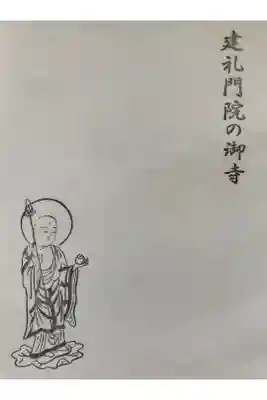 建礼門院の御寺